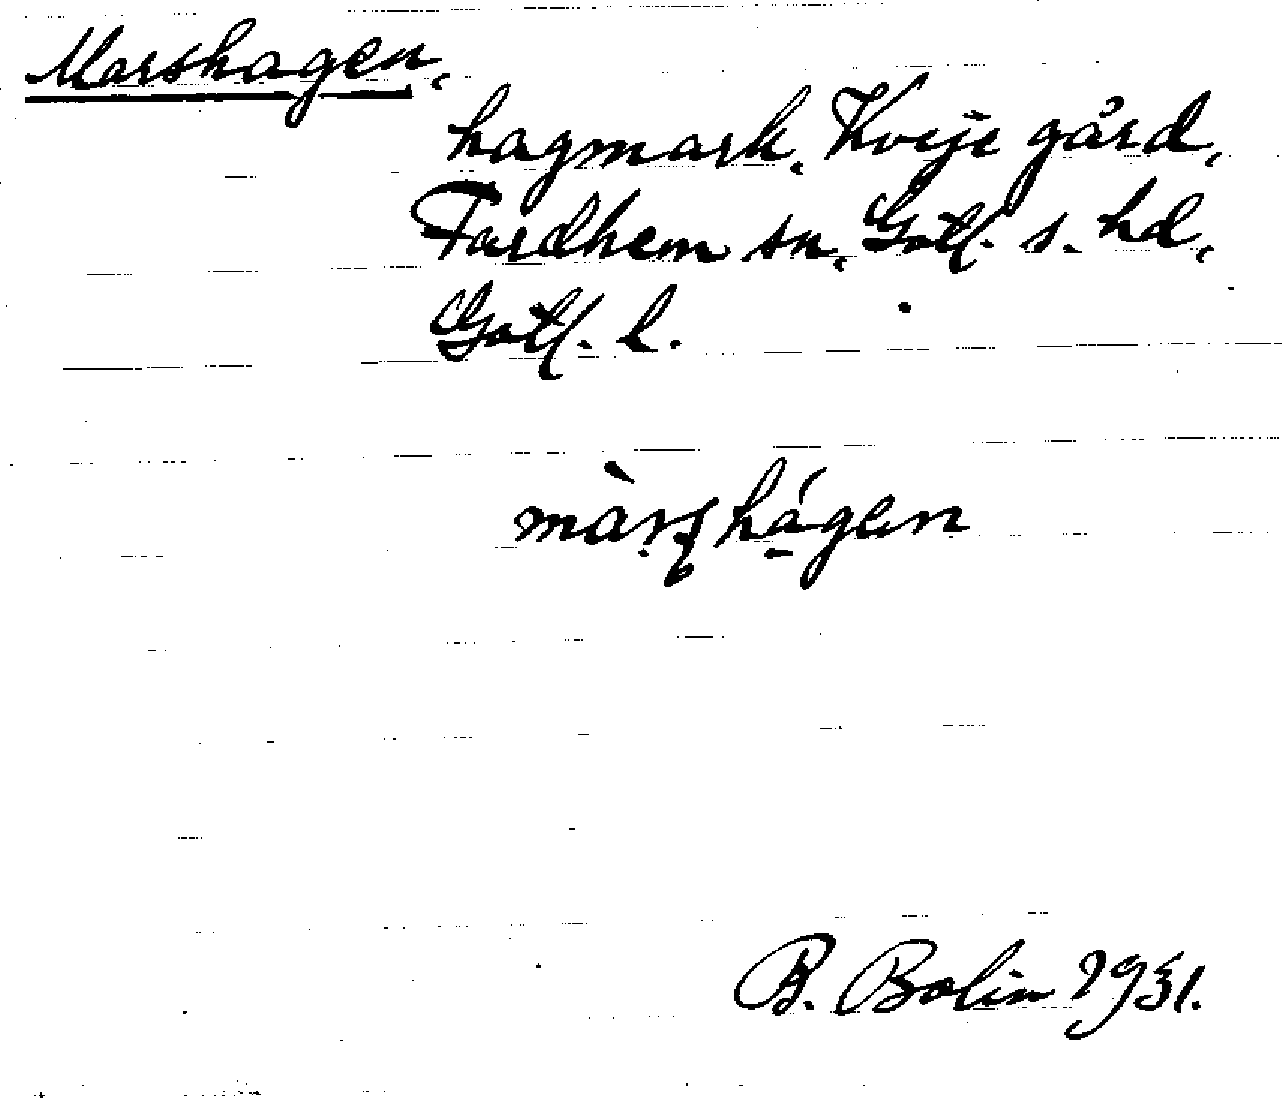 Marshagen,
hagmark, Kvije gård,
Fardhem sn, Gotl. s. hd,
Gotl. l.
B. Bolin 1931.